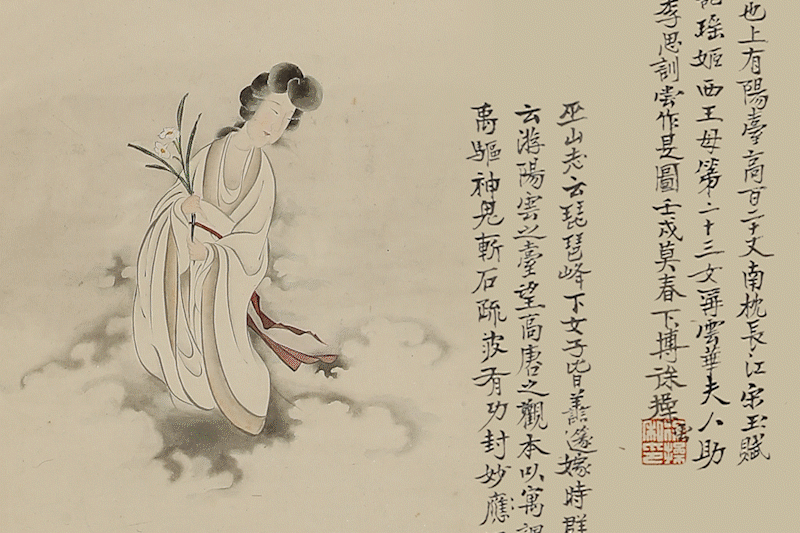 也上有陽臺高百二十丈南枕長江宋玉賦
瑤姬西王母第二十三女雲華夫人助
李思訓嘗作是圖壬戌莫春下摶徐操
巫山志云琵琶峰下女子皆善篴嫁時群
云游陽雲之臺望高唐之觀本以寓
禹驅神鬼斬石疏波有功封妙應